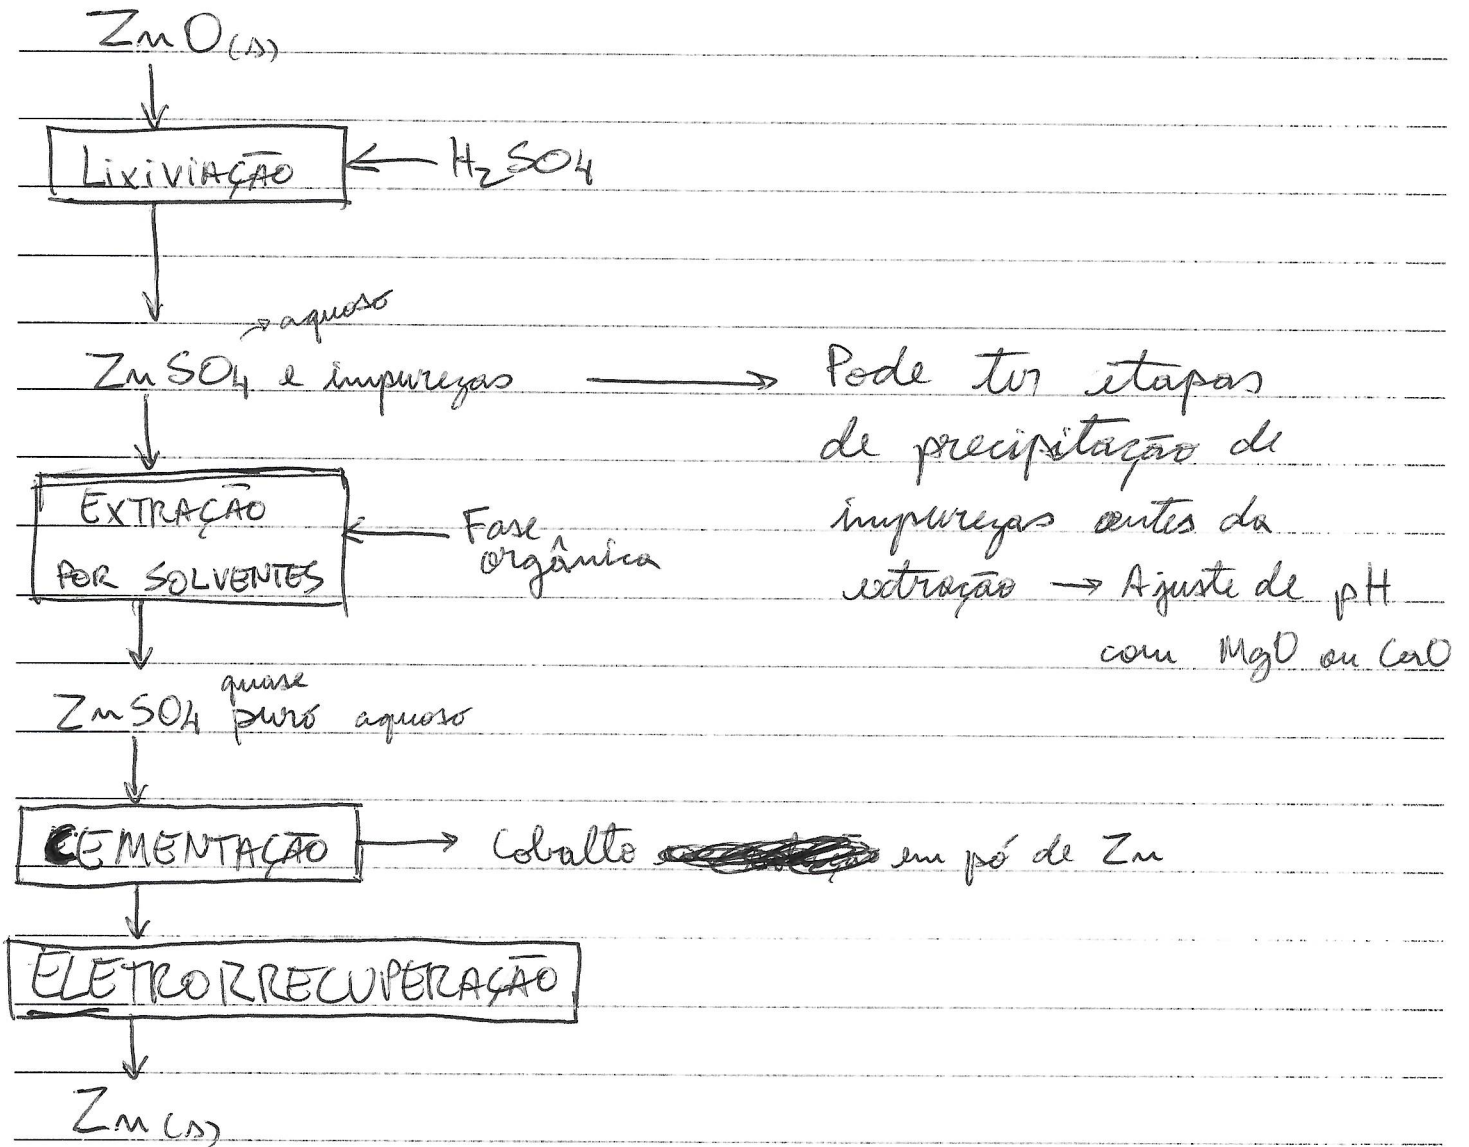 ZnO(s)
LIXIVIAÇÃO
H2SO4
→ aquoso
ZnSO4 e impurezas → Pode ter etapas
de precipitação de
impurezas antes da
extração → Ajuste de pH
com MgO ou CaO
EXTRAÇÃO
POR SOLVENTES
Fase
orgânica
quase
ZnSO4 puro aquoso
CEMENTAÇÃO → Cobalto em pó de Zn
ELETRORRECUPERAÇÃO
Zn(s)